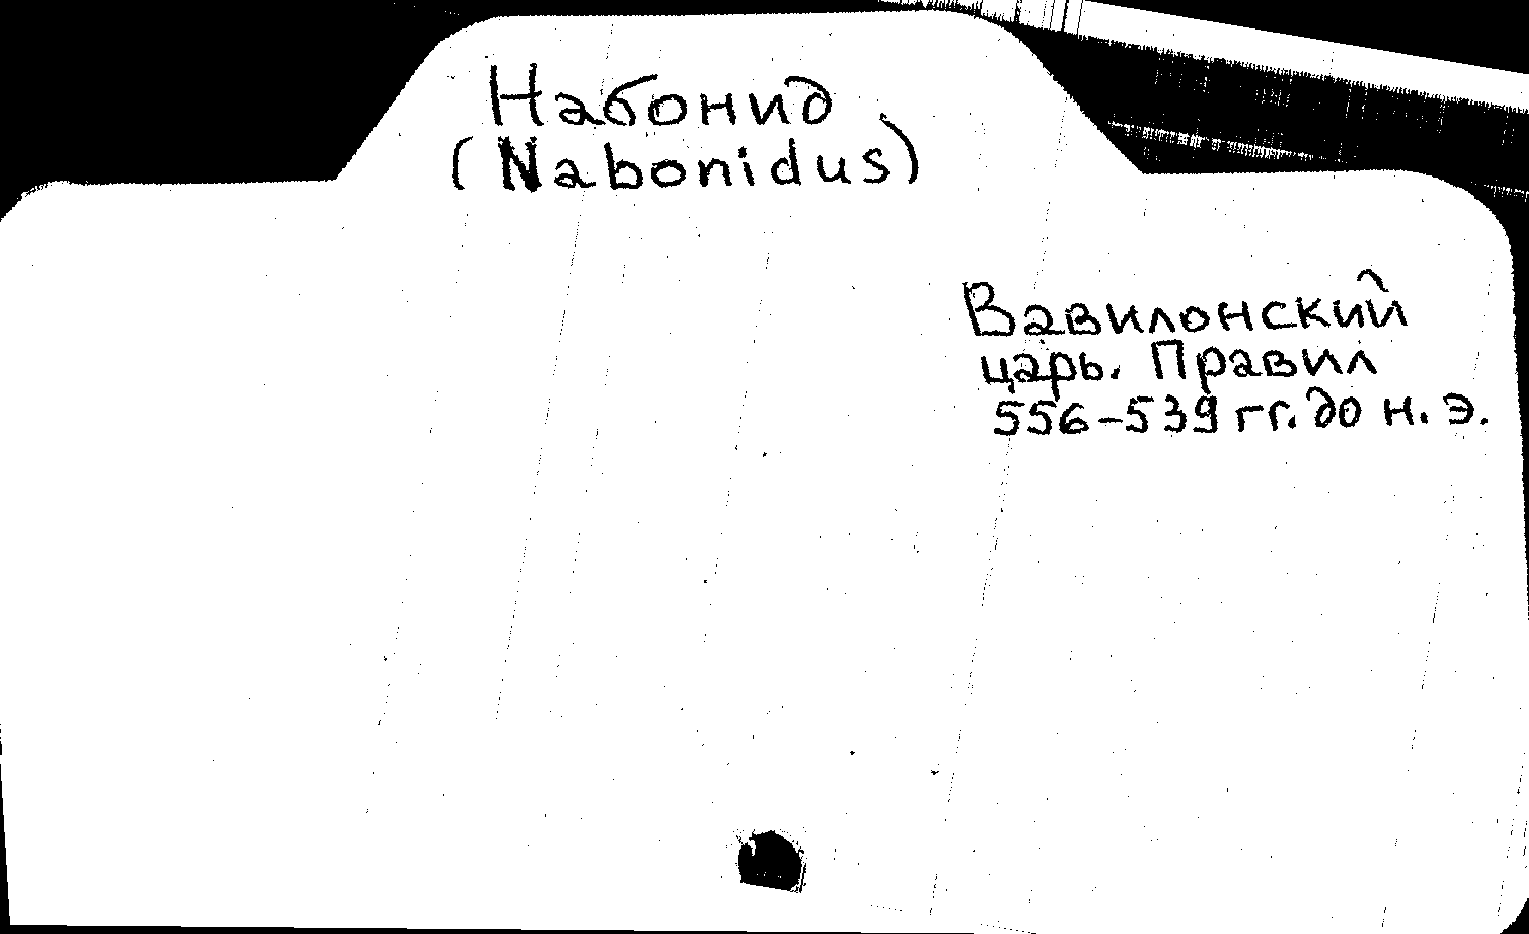 Набонид
(Nabonidus)
Вавилонский
царь. Правил
556-539 гг. до н. э.